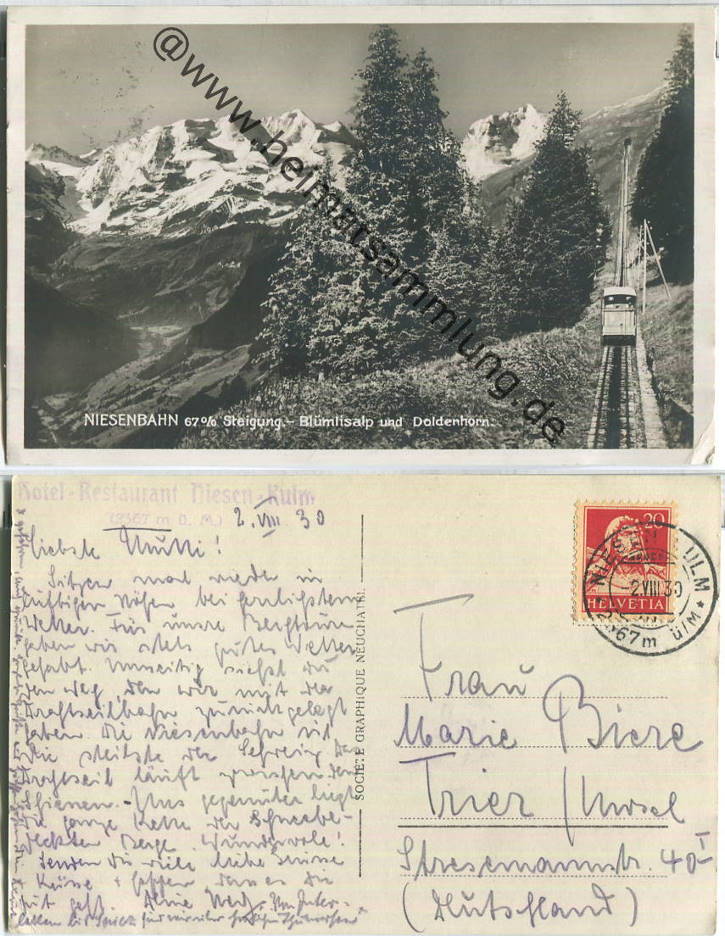 @www.heimatsammlung.de
NIESENBAHN 67% Steigung.- Blümlisalp und Doldenhorn.
Hotel-Restaurant Niesen-Kulm
(2367 m ü. M.) 2. VIII 30
Liebste Mutti!
Sitzen mal wieder in
luftigen Höhen bei herrlichstem
Wetter. Für unsre Bergtouren
haben wir stets gutes Wetter
gehabt. Umseitig siehst du
den Weg, den wir mit der
Drahtseilbahn zurückgelegt
haben. Die Niesenbahn ist
die steilste der Schweiz. Das
Drahtseil läuft zwischen den
Schienen. - Uns gegenüber liegt
die ganze Kette der Schneebe-
deckten Berge. Wundervoll!
Senden dir viele liebe Grüsse
+ Küsse + hoffen dass es dir
gut geht. Deine
SOCIÉTÉ GRAPHIQUE NEUCHATEL
20
HELVETIA
NIESEN KULM
-2.VIII.30
2367m ü/M
Frau
Marie Biere
Trier / Mosel
Stresemannstr. 40 I
(Deutschland)